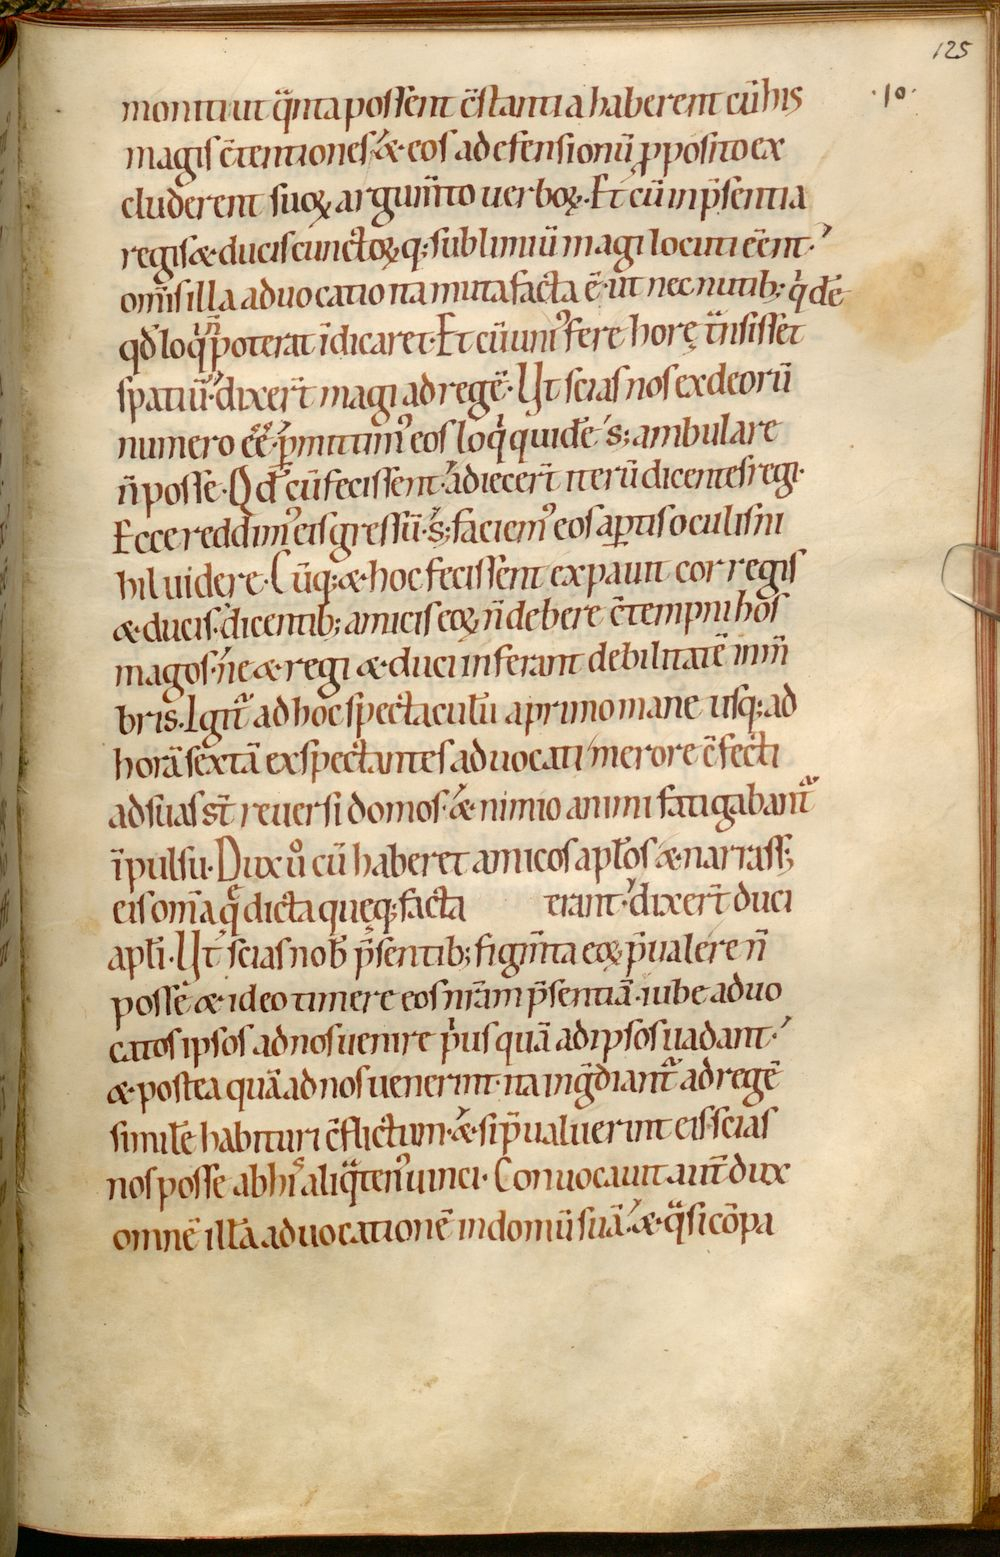 125
·10·
moniti ut q̃nta possent c̄stantia haberent cū his
magis c̄tentiones·́ & eos a defensionū ꝓposito ex
cluderent suoꝝ argum̄to uerboꝝ. Et cū in p̄sentia
regis & ducis cunctoꝝq; sublimiū magi locuti eēnt·́
om̄is illa aduocatio ita muta facta ē· ut nec nutib; q̇dē
qd̄ loq̇ ñ poterat īdicaret· Et cū uni᾿ fere horę tñsisset
spatiū·́ dixer̄t magi ad regē· Ut scias nos ex deorū
numero eē·́ p̄mittim᾿ eos loq̇ quidē s; ambulare
n̄ posse· Qd̄ cū fecissent·́ adiecer̄t iterū dicentes regi·
Ecce reddim᾿ eis gressū· s; faciem᾿ eos aꝑtis oculis ni
hil uidere· Cūq; & hoc fecissent expauit cor regis
& ducis· dicentib; amicis eoꝝ n̄ debere c̄tempni hos
magos· ne & regi & duci inferant debilitatē in mē
bris. Igit᷑ ad hoc spectacul̄u a primo mane usq; ad
horā sextā exspectantes aduocati merore c̄fecti
ad suas st̄ reuersi domos·́ & nimio animi fatigabant᷑
īpulsu· Dux u̾ cū haberet amicos apl̄os & narrass;
eis om̄a q̄ dicta queq; facta erant·́ dixer̄t duci
apl̄i· Ut scias nob̄ p̄sentib; figm̄ta eoꝝ p̄ualere n̄
posse & ideo timere eos nr̄am p̄sentiā· iube aduo
catos ipsos ad nos uenire p̓us quā ad ipsos uadant·́
& postea quā ad nos uenerint· ita ingr̄diant᷑ ad regē
simile habituri c̄flictum·́ & si p̄ualuerint eis· scias
nos posse ab hi᾿ aliq̃ten᾿ uinci· Conuocauit aut̄ dux
omnē illā aduocationē in domū suā·́ & q̃si cōpa